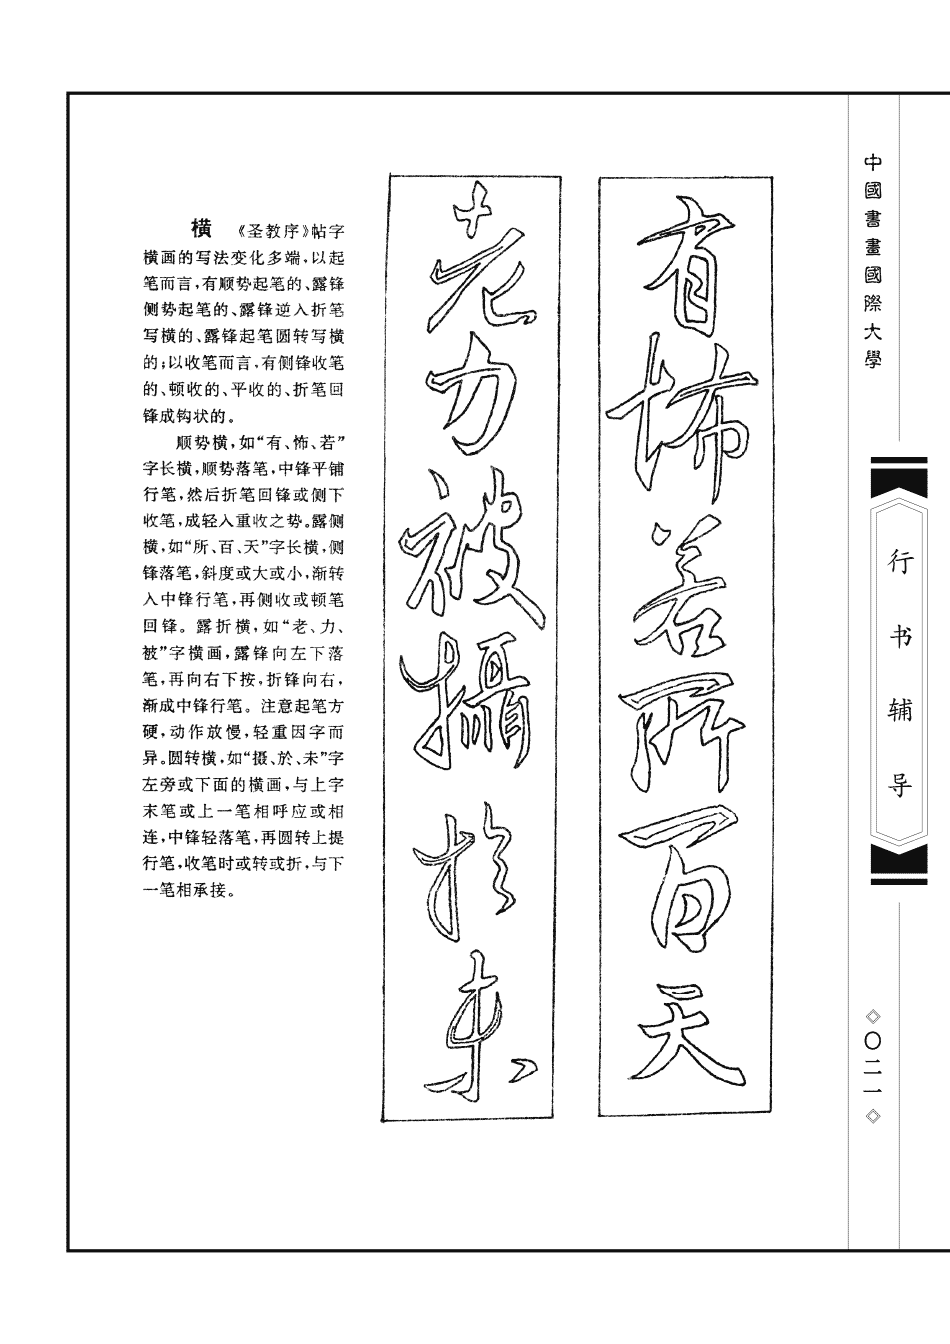 中國書畫國際大學
行书辅导
〇二一
有怖若所百天
老力被攝於未
横　《圣教序》帖字
横画的写法变化多端，以起
笔而言，有顺势起笔的、露锋
侧势起笔的、露锋逆入折笔
写横的、露锋起笔圆转写横
的；以收笔而言，有侧锋收笔
的、顿收的、平收的、折笔回
锋成钩状的。
顺势横，如“有、怖、若”
字长横，顺势落笔，中锋平铺
行笔，然后折笔回锋或侧下
收笔，成轻入重收之势。露侧
横，如“所、百、天”字长横，侧
锋落笔，斜度或大或小，渐转
入中锋行笔，再侧收或顿笔
回锋。露折横，如“老、力、
被”字横画，露锋向左下落
笔，再向右下按，折锋向右，
渐成中锋行笔。注意起笔方
硬，动作放慢，轻重因字而
异。圆转横，如“摄、於、未”字
左旁或下面的横画，与上字
末笔或上一笔相呼应或相
连，中锋轻落笔，再圆转上提
行笔，收笔时或转或折，与下
一笔相承接。